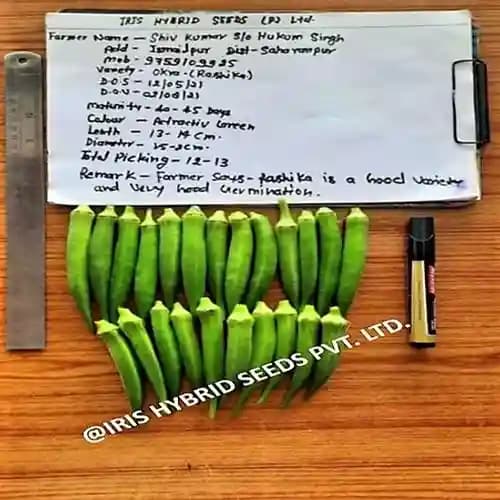 IRIS HYBRID SEEDS (P) Ltd.
Farmer Name – Shiv Kumar S/o Hukum Singh
Add – Ismailpur Dist – Saharanpur
Mob – 9759109935
Variety – Okra – (Rashika)
D.O.S – 12/05/21
D.O.V – 02/08/21
Maturity – 40 – 45 Days
Colour – Attractiv Green
Lenth – 13 – 14 cm.
Diameter – 1.5 – 2cm.
Total Picking – 12 – 13
Remark – Farmer Says – Rashika is a Good Variety
and Very Good Germination.
@IRIS HYBRID SEEDS PVT. LTD.